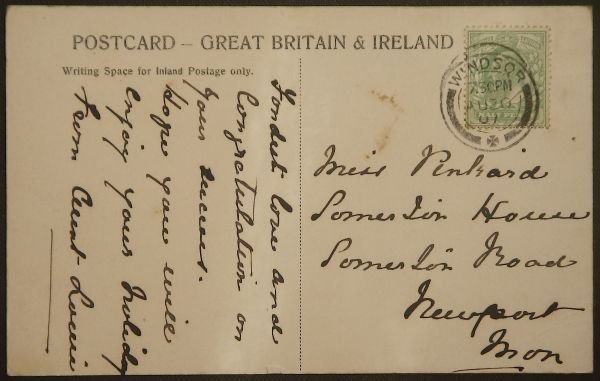 POSTCARD – GREAT BRITAIN & IRELAND
Writing Space for Inland Postage only.
Fondest love and
Congratulation on
your success.
Hope you will
enjoy your holiday
From Aunt Louie
Miss Penkard
Somerton House
Somerton Road
Newport
Mon
WINDSOR
7.30PM
07